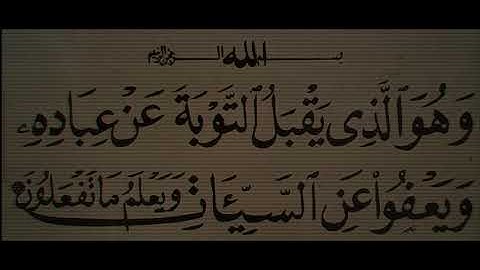 بسم الله الرحمن الرحيم
وَهُوَ الَّذِى يَقْبَلُ التَّوْبَةَ عَنْ عِبَادِهِ
وَيَعْفُوا۟ عَنِ السَّيِّئَاتِ وَيَعْلَمُ مَا تَفْعَلُونَ